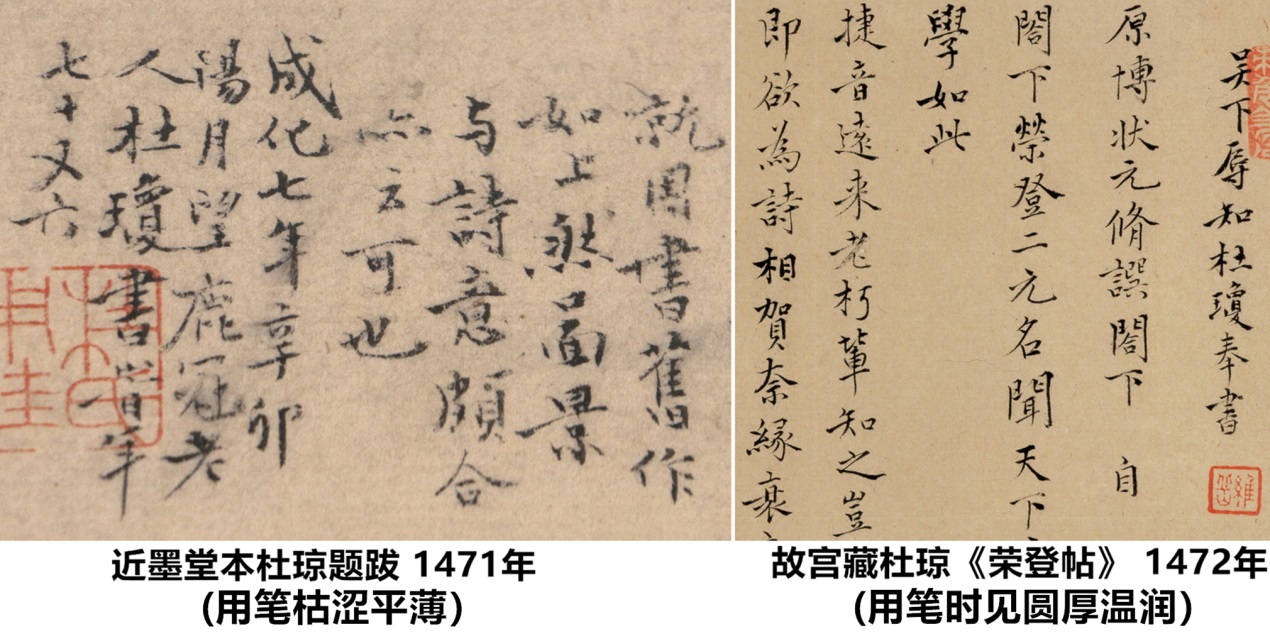 就圖書舊作
如上然畵景
与詩意頗合
亦云可也
成化七年辛卯
陽月望鹿冠老
人杜瓊書旹年
七十又六
近墨堂本杜琼题跋 1471年
(用笔枯涩平薄)
吴下辱知杜瓊奉書
原博狀元脩譔閤下 自
閤下榮登二元名聞天下
學如此
捷音遠来老朽軰知之豈
即欲為詩相賀奈緣衰
故宫藏杜琼《荣登帖》 1472年
(用笔时见圆厚温润)